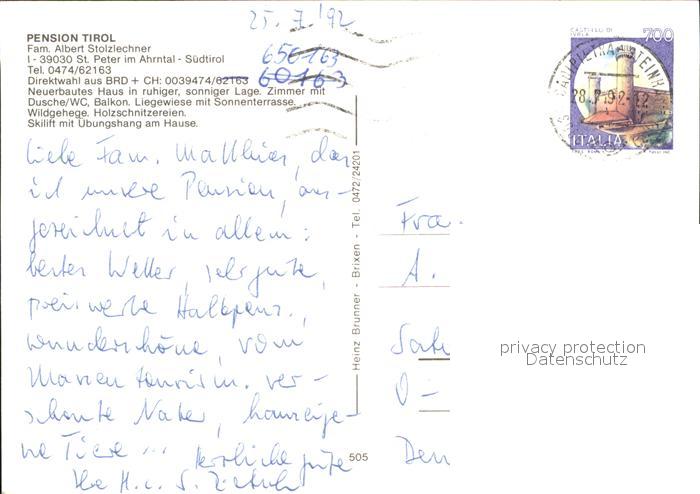 25.7.'92
PENSION TIROL
Fam. Albert Stolzlechner
I - 39030 St. Peter im Ahrntal - Südtirol
Tel. 0474/62163
Direktwahl aus BRD + CH: 0039474/62163
650163
60163
Neuerbautes Haus in ruhiger, sonniger Lage. Zimmer mit
Dusche/WC, Balkon. Liegewiese mit Sonnenterrasse.
Wildgehege. Holzschnitzereien.
Skilift mit Übungshang am Hause.
Liebe Fam. Matthias, das
ist unsere Pension, aus-
gezeichnet in allem:
bestes Wetter, sehr gute,
preiswerte Halbpens.,
wunderschöne, vom
Massentourism. ver-
schonte Natur, hauseige-
ne Tiere ... herzliche Grüße
H. u. S.
Heinz Brunner - Brixen - Tel. 0472/24201
505
CASTELLO DI
IVREA
700
ITALIA
CAMPO TURES
28.7.92-12
Frau
A.
O-
Den
privacy protection
Datenschutz